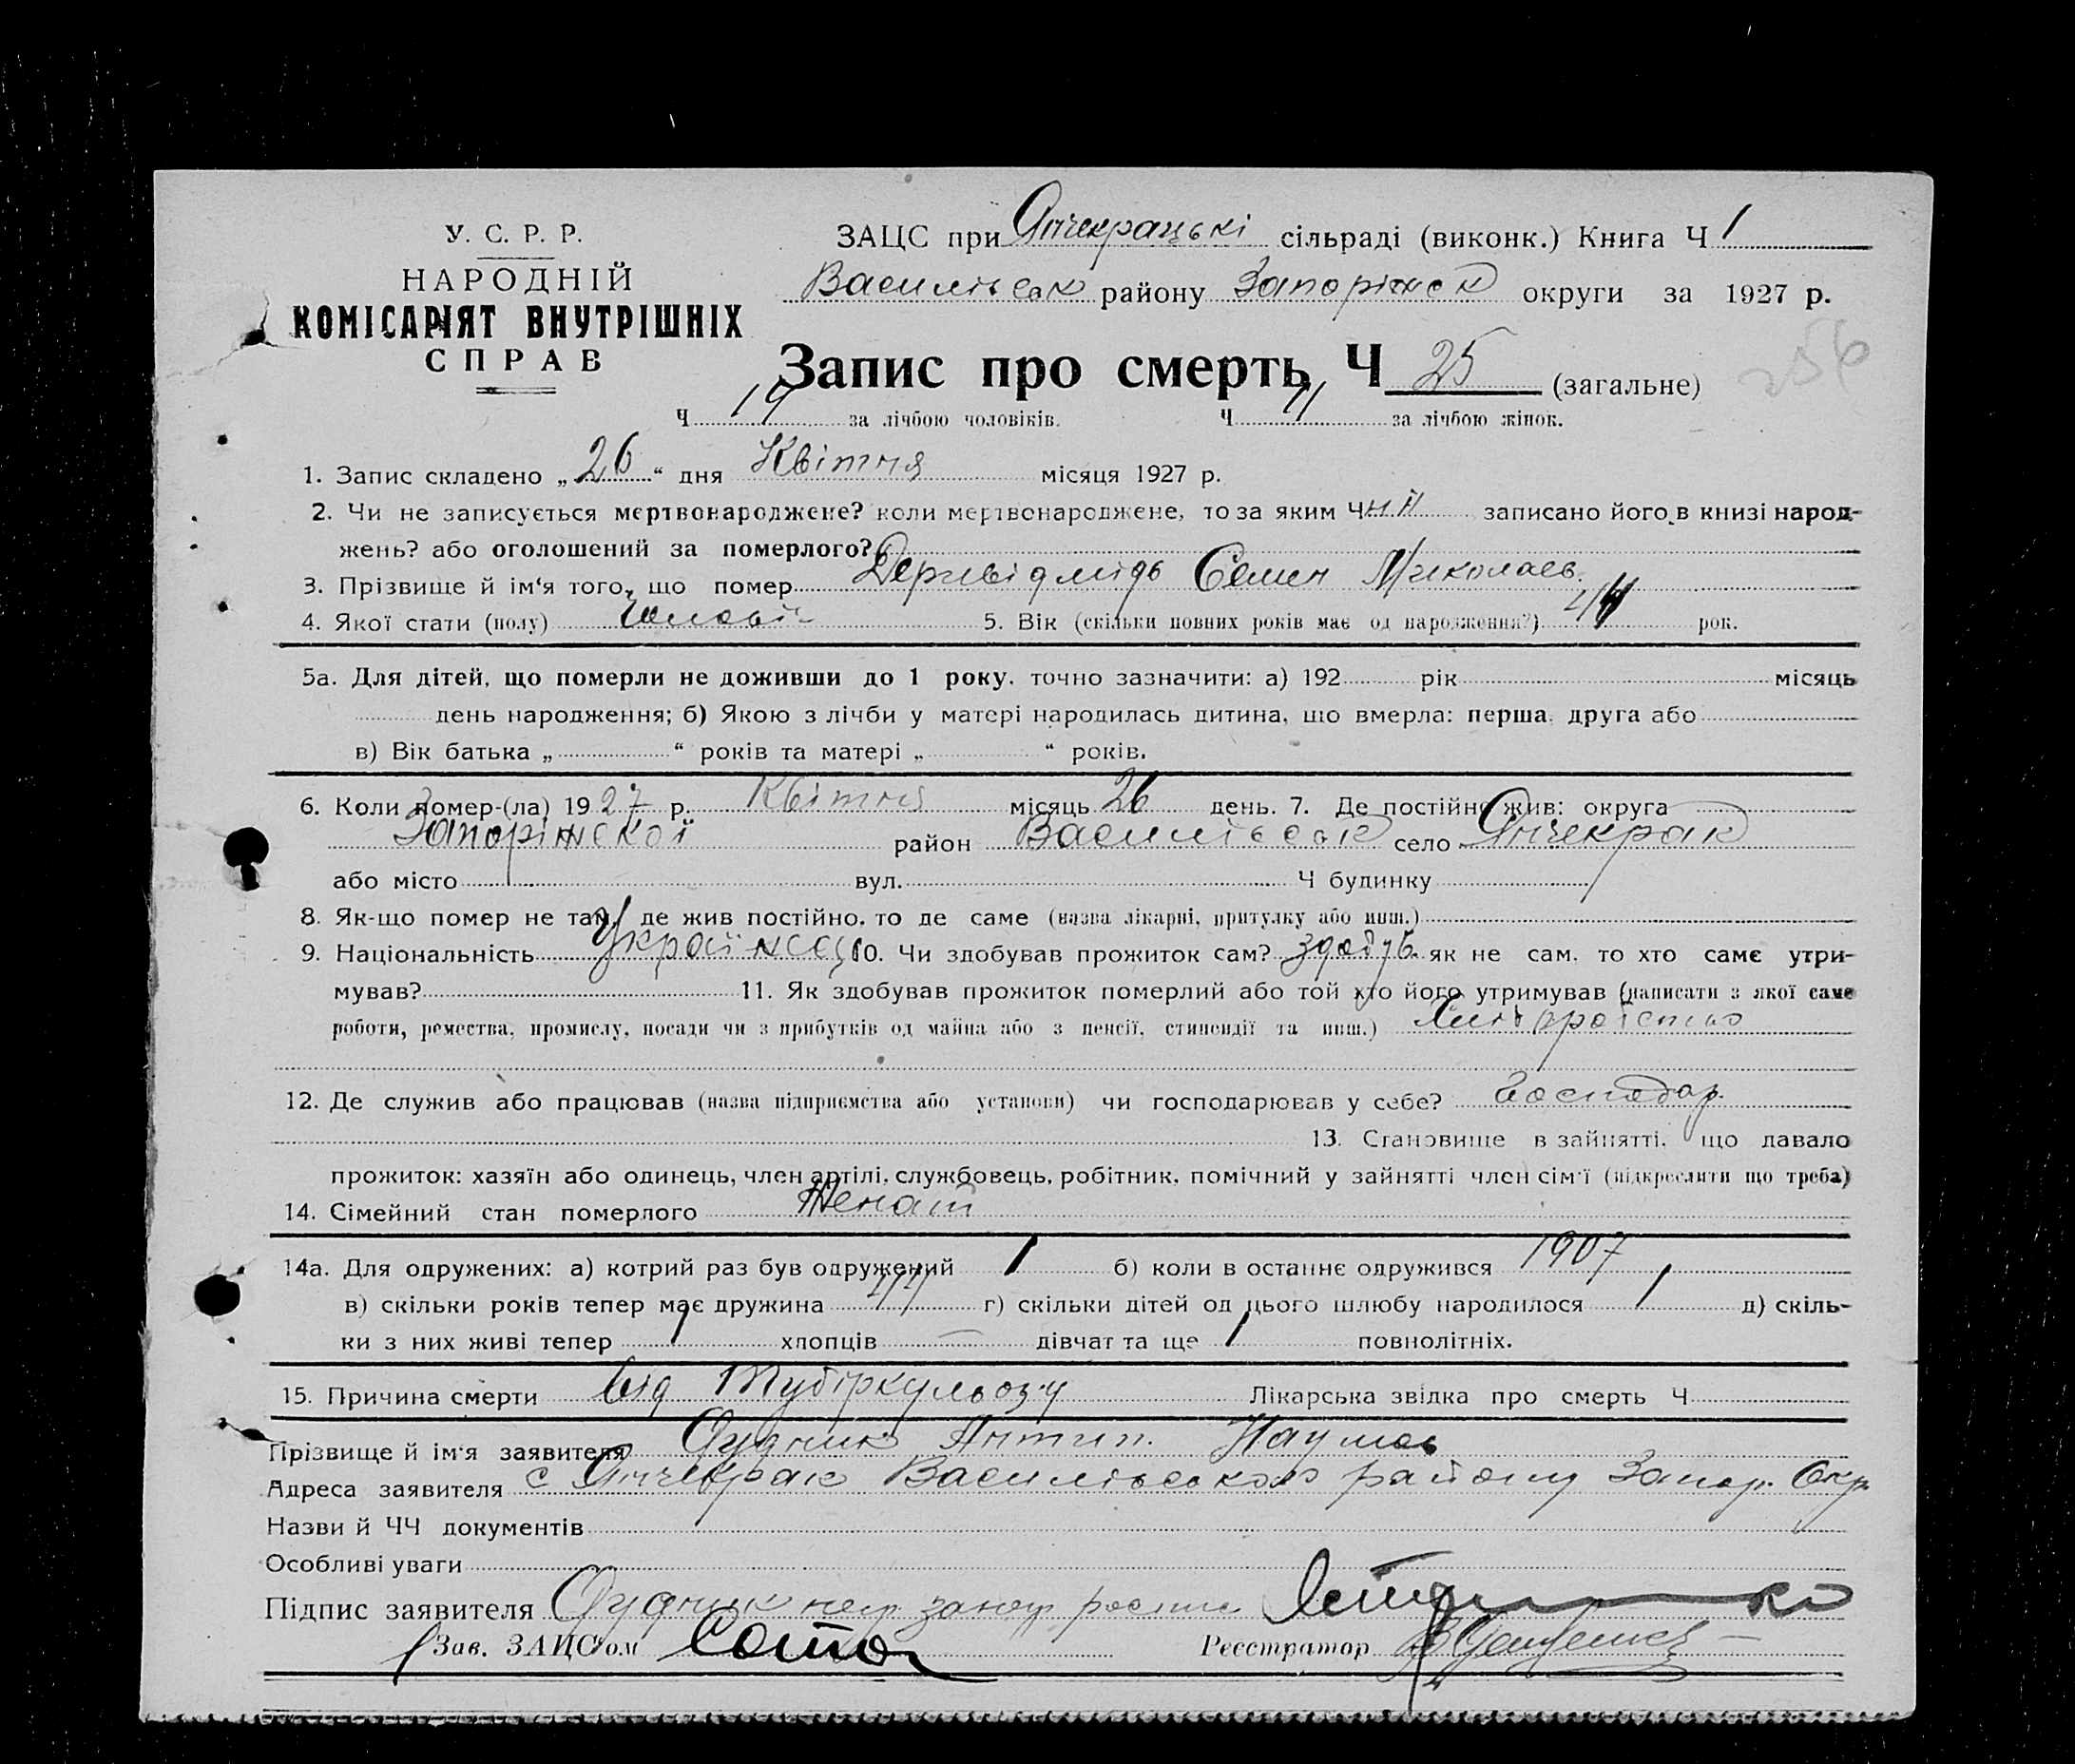 У. С. Р. Р.
НАРОДНІЙ
КОМІСАРІЯТ ВНУТРІШНІХ
СПРАВ
ЗАЦС при Янчекрацькі сільраді (виконк.) Книга Ч 1
Василівськ району Запоріжск округи за 1927 р.
Запис про смерть Ч 25 (загальне)
256
Ч 14 за лічбою чоловіків. Ч 11 за лічбою жінок.
1. Запис складено „ 26 “ дня Квітня місяця 1927 р.
2. Чи не записується мертвонароджене? коли мертвонароджене, то за яким Ч записано його в книзі народ-
жень? або оголошений за померлого?
3. Прізвище й ім‘я того, що помер Семен Миколаєв.
4. Якої статі (полу) 5. Вік (скільки повних років має од народження?) 44 рок.
5а. Для дітей, що померли не доживши до 1 року, точно зазначити: а) 192 рік місяць
день народження; б) Якою з лічби у матері народилась дитина, що вмерла: перша, друга або
в) Вік батька „ “ років та матері „ “ років.
6. Коли помер-(ла) 1927 р. Квітня місяць 26 день. 7. Де постійно жив: округа
Запоріжської район Василівськ село Янчекрак
або місто вул. Ч будинку
8. Як-що помер не там, де жив постійно, то де саме (назва лікарні, притулку або инш.)
9. Національність Українец 10. Чи здобував прожиток сам? здобув. як не сам, то хто саме утри-
мував? 11. Як здобував прожиток померлий або той хто його утримував (написати з якої саме
роботи, ремества, промислу, посади чи з прибутків од майна або з пенсії, стипендії та инш.) Хліборобство
12. Де служив або працював (назва підприємства або установи) чи господарював у себе? Господар.
13. Становище в зайнятті, що давало
прожиток: хазяїн або одинець, член артілі, службовець, робітник, помічний у зайнятті член сім‘ї (підкреслити що треба)
14. Сімейний стан померлого Женат
14а. Для одружених: а) котрий раз був одружений 1 б) коли в останнє одружився 1907
в) скільки років тепер має дружина 44 г) скільки дітей од цього шлюбу народилося 1 д) скіль-
ки з них живі тепер 1 хлопців — дівчат та ще 1 повнолітніх.
15. Причина смерті від Тубіркульозу Лікарська звідка про смерть Ч
Прізвище й ім‘я заявителя Дудник Антип. Наумов
Адреса заявителя с Янчекрак Василівського району Запор. Окр.
Назви й ЧЧ документів
Особливі уваги
Підпис заявителя Дудник
Зав. ЗАЦС‘ом Реєстратор